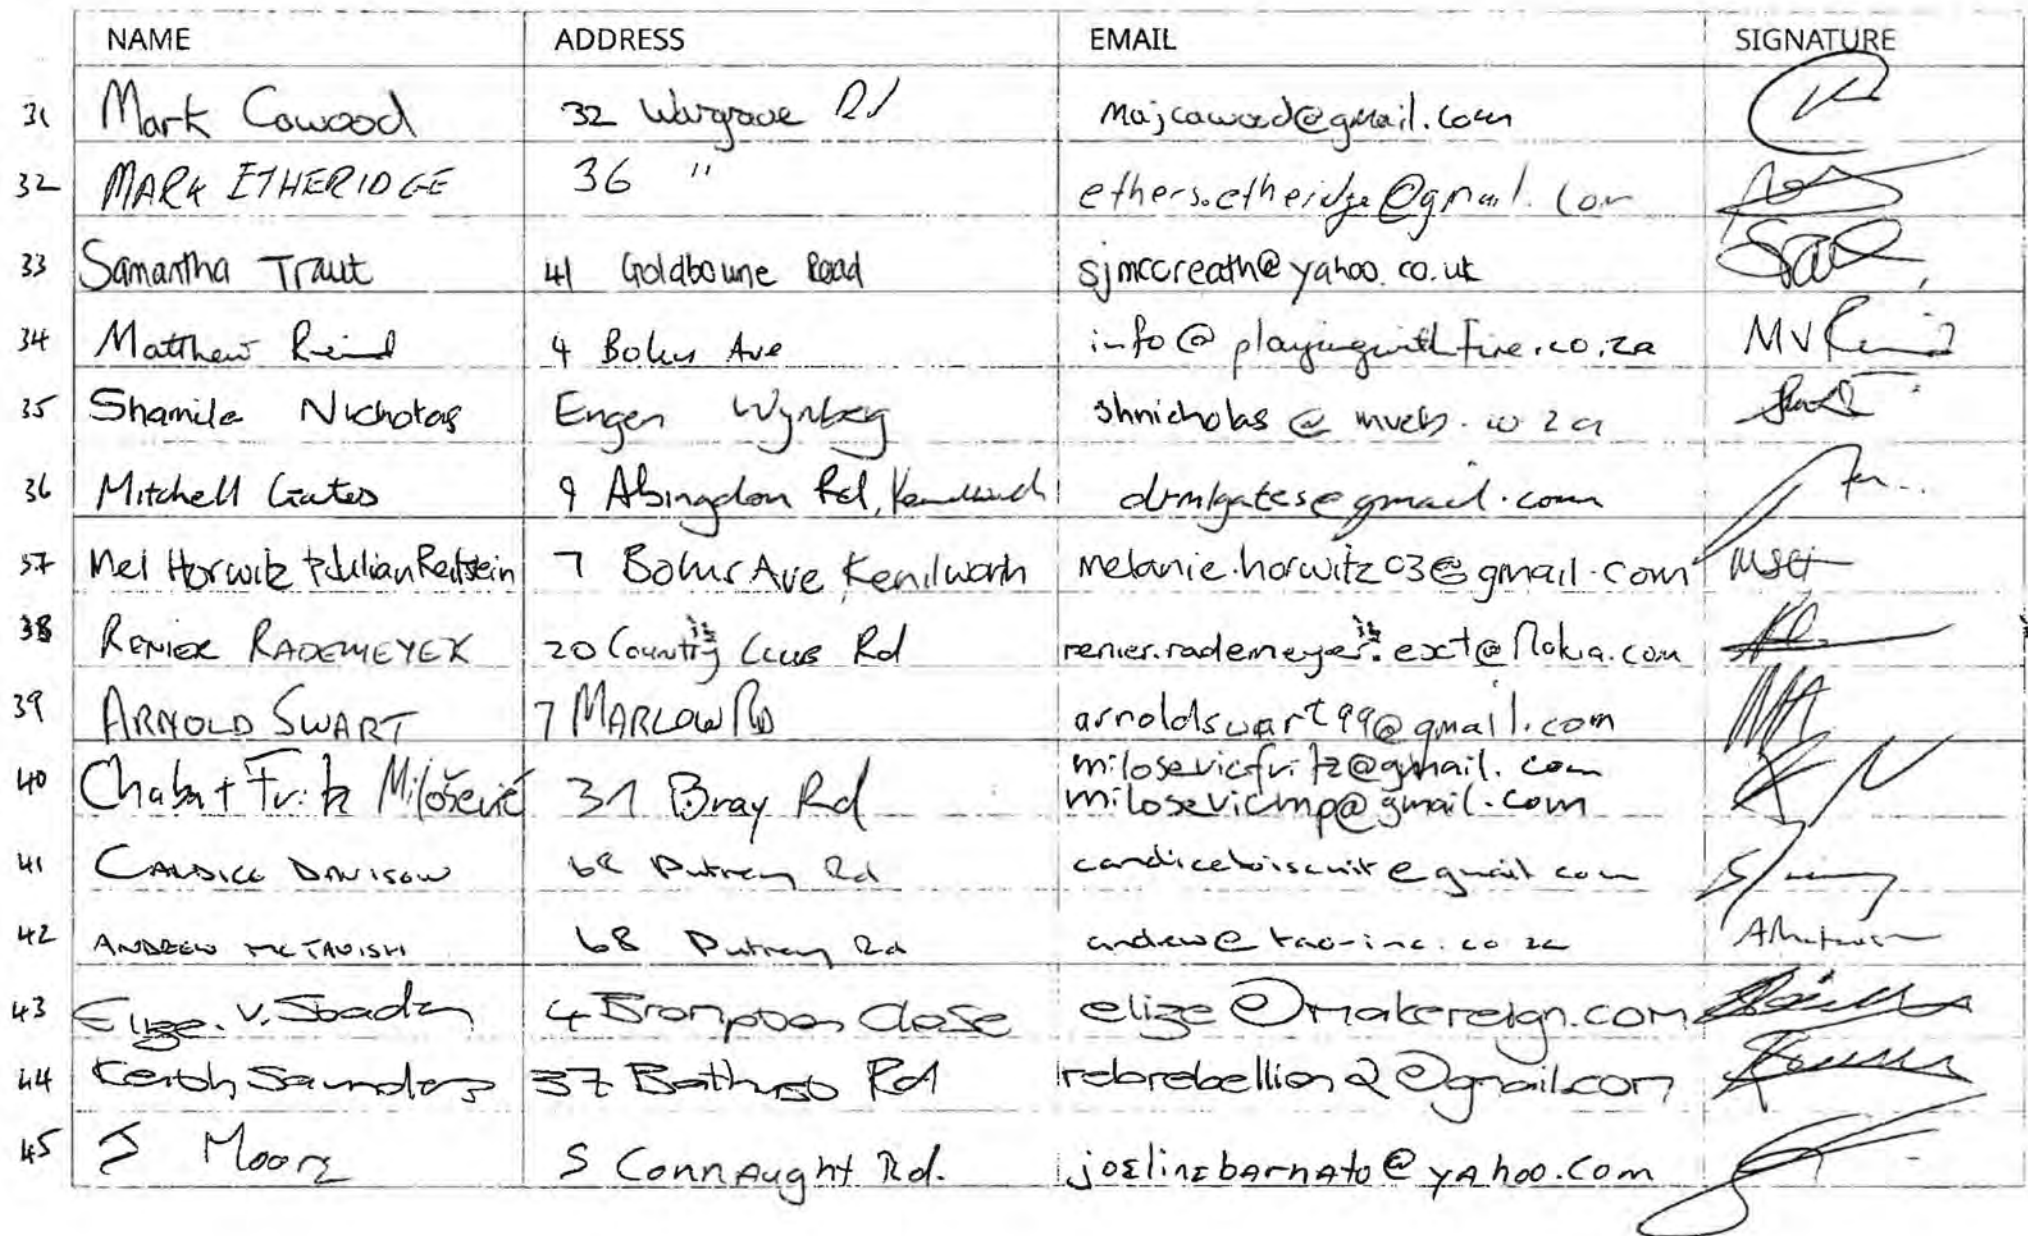 NAME ADDRESS EMAIL SIGNATURE
31 Mark Cawood 32 Wargrave Rd majcawood@gmail.com
32 MARK ETHERIDGE 36 " ethers.etheridge@gmail.com
33 Samantha Traut 41 Goldbourne Road sjmccreath@yahoo.co.uk
34 Matthew 4 Bolus Ave info@playingwithfire.co.za MV
35 Shamila Nicholas Engen Wynberg shnicholas@ .co za
36 Mitchell Gates 9 Abingdon Rd, Kenilworth drmlgates@gmail.com
37 Mel Horwitz + Julian Reitstein 7 Bolus Ave Kenilworth melanie.horwitz03@gmail.com
38 RENIER RADEMEYER 20 Country CLUB Rd renier.rademeyer.ext@Nokia.com
39 ARNOLD SWART 7 MARLOW RD arnoldswart99@gmail.com
40 + Fritz Milošević 31 Bray Rd milosevicfritz@gmail.com
milosevicmp@gmail.com
41 CANDICE DAVISON 68 Putney Rd candicebiscuit@gmail com
42 ANDREW MCTAVISH 68 Putney Rd andrew@tao-inc.co za
43 Elize. V. 4 Brompton Close elize@makereign.com
44 Keith Saunders 37 Bathurst Rd rebrebellion2@gmail.com
45 J Moore 5 Connaught Rd. joelinebarnato@yahoo.com